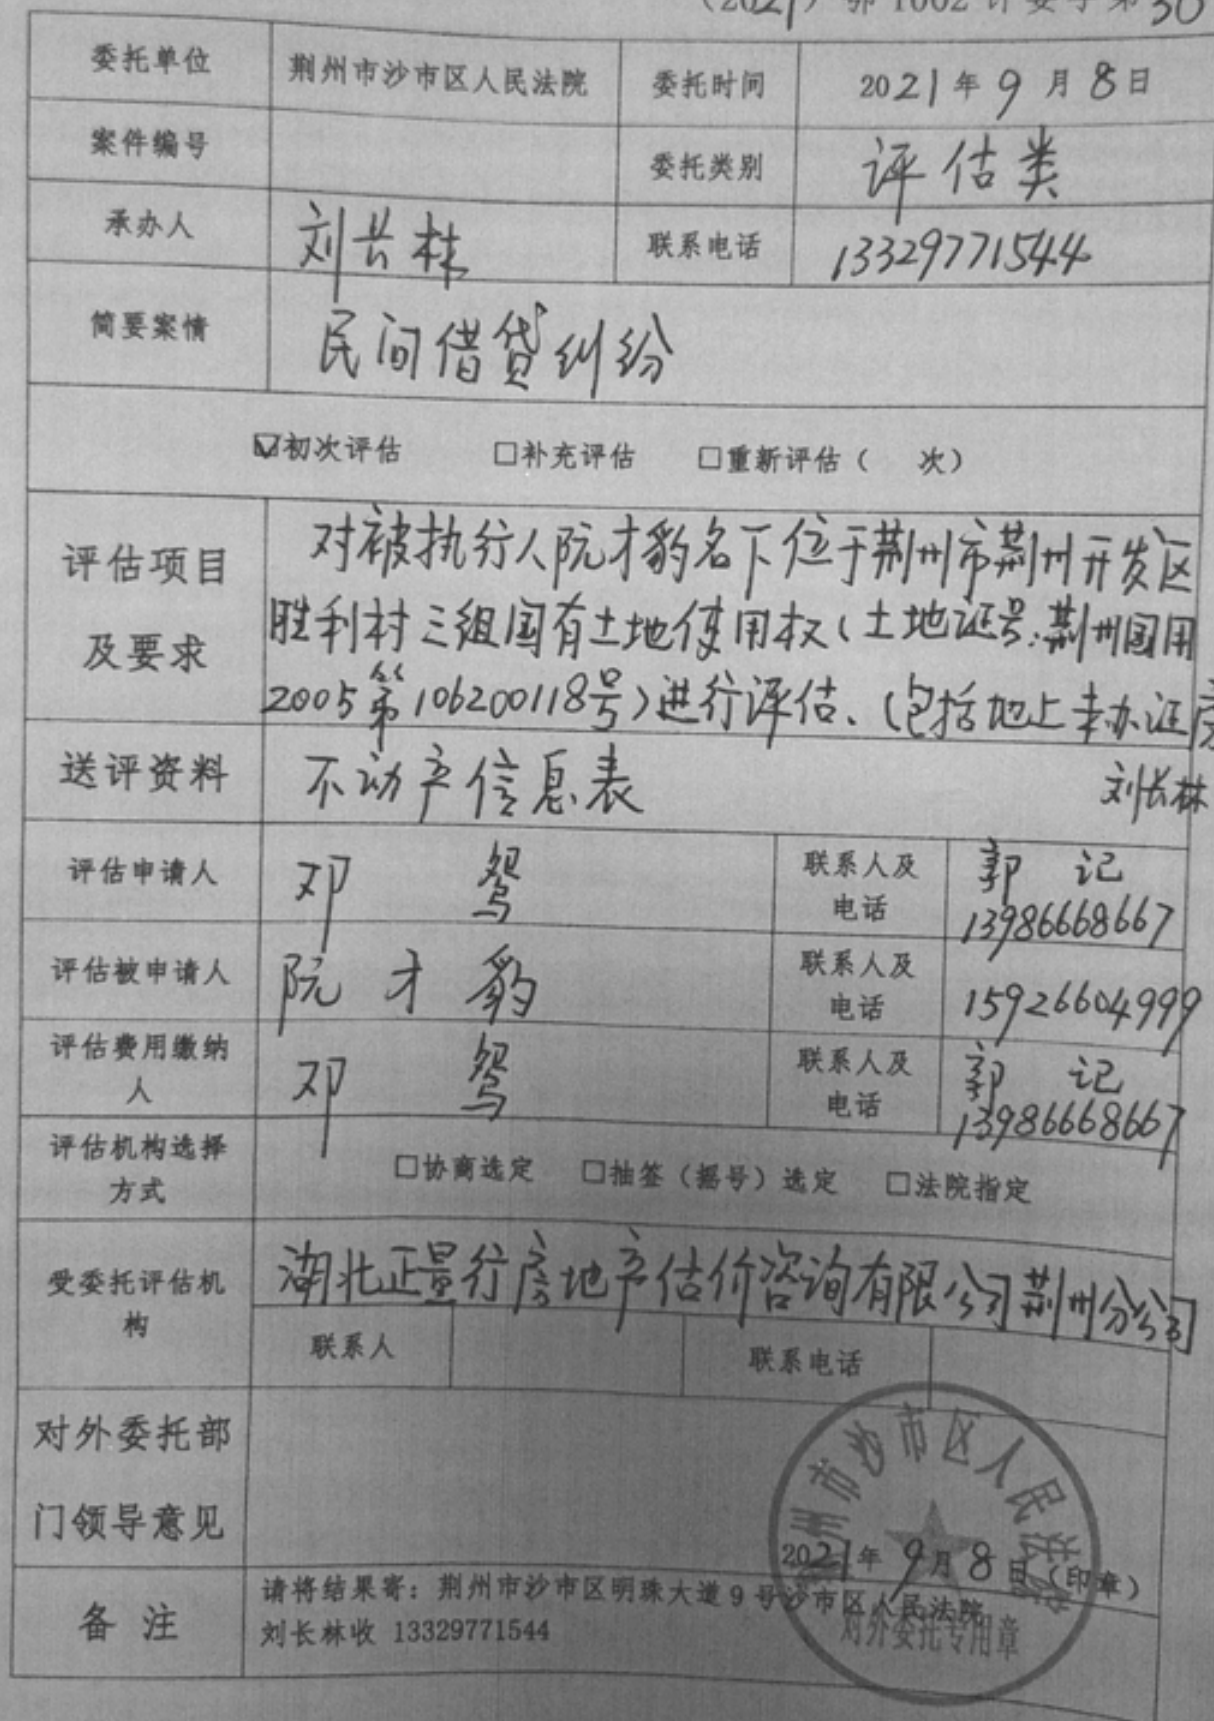 (2021)鄂1002评委字第30
委托单位 荆州市沙市区人民法院 委托时间 2021年9月8日
案件编号 委托类别 评估类
承办人 刘长林 联系电话 13329771544
简要案情 民间借贷纠纷
☑初次评估 □补充评估 □重新评估( 次)
评估项目及要求
对被执行人阮才豹名下位于荆州市荆州开发区
胜利村三组国有土地使用权(土地证号:荆州国用
2005第106200118号)进行评估、(包括地上未办证房
送评资料 不动产信息表 刘长林
评估申请人 邓 鸳 联系人及电话 郭 记
13986668667
评估被申请人 阮才豹 联系人及电话 15926604999
评估费用缴纳人 邓 鸳 联系人及电话 郭 记
13986668667
评估机构选择方式 □协商选定 □抽签(摇号)选定 □法院指定
受委托评估机构 湖北正量行房地产估价咨询有限公司荆州分公司
联系人 联系电话
对外委托部
门领导意见
荆州市沙市区人民法院
2021年9月8日(印章)
对外委托专用章
备 注
请将结果寄:荆州市沙市区明珠大道9号沙市区人民法院
刘长林收 13329771544